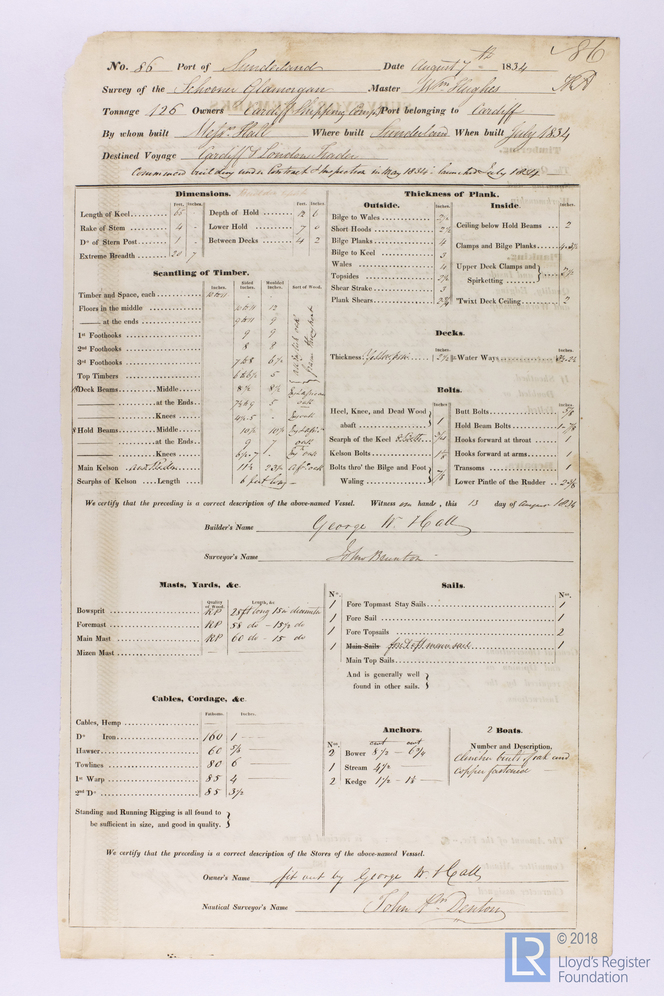 86
No. 86 Port of Sunderland Date August 7th 1834
Survey of the Schooner Glamorgan Master Wm Hughes
Tonnage 126 Owners Cardiff Shipping Comp Port belonging to Cardiff
By whom built Messrs Hall Where built Sunderland When built July 1834
Destined Voyage Cardiff & London Trader
Commenced building under Contract & Inspection in May 1834 launched July 1834
Dimensions.
Feet. Inches. Feet. Inches.
Length of Keel 65 Depth of Hold 12 6
Rake of Stem 4 - Lower Hold 7 0
Do of Stern Post 1 - Between Decks 4 2
Extreme Breadth 20 7
Scantling of Timber.
Inches. Sided Inches. Moulded Inches. Sort of Wood.
Timber and Space, each
Floors in the middle 12
at the ends 9
1st Foothooks 9 9
2nd Foothooks 8 8
3rd Foothooks 7 & 8 6½
Top Timbers 5
Deck Beams Middle 8½ 8½
at the Ends 5
Knees
Hold Beams Middle 10½ 10½
at the Ends 9 7
Knees
Main Kelson 11½
Scarphs of Kelson Length 6 feet long
Thickness of Plank.
Outside.
Inches.
Bilge to Wales
Short Hoods
Bilge Planks 4
Bilge to Keel 3
Wales 4
Topsides
Shear Strake 3
Plank Shears
Inside.
Inches.
Ceiling below Hold Beams 2
Clamps and Bilge Planks
Upper Deck Clamps and Spirketting 2½
'Twixt Deck Ceiling 2
Decks.
Inches. Inches.
Thickness Yellow pine Water Ways
Bolts.
Inches. Inches.
Heel, Knee, and Dead Wood abaft 1
Scarph of the Keel
Kelson Bolts
Bolts thro' the Bilge and Foot Waling 7/8
Butt Bolts 5/8
Hold Beam Bolts
Hooks forward at throat 1
Hooks forward at arms 1
Transoms 1
Lower Pintle of the Rudder
We certify that the preceding is a correct description of the above-named Vessel. Witness our hands, this 13 day of August 1834
Builder's Name George W. Hall
Surveyor's Name John Brunton
Masts, Yards, &c.
Quality of Wood. Length, &c
Bowsprit RP 25 ft long 15 in diameter
Foremast RP 58 do - 15½ do
Main Mast RP 60 do - 15 do
Mizen Mast
Sails.
No. Nos.
1 Fore Topmast Stay Sails 1
1 Fore Sail 1
1 Fore Topsails 2
1 Main Sails fore & aft mainsail 1
Main Top Sails
And is generally well found in other sails.
Cables, Cordage, &c.
Fathoms. Inches.
Cables, Hemp
Do Iron 160 1
Hawser 60
Towlines 80 6
1st Warp 85 4
2nd Do 85 3½
Standing and Running Rigging is all found to be sufficient in size, and good in quality.
Anchors.
Nos. cwt cwt
2 Bower 8½ - 6¾
1 Stream
2 Kedge
2 Boats.
Number and Description.
clincher built of oak and
copper fastened
We certify that the preceding is a correct description of the Stores of the above-named Vessel.
Owner's Name fit out by George W. Hall
Nautical Surveyor's Name John Denton
LR
© 2018
Lloyd's Register
Foundation